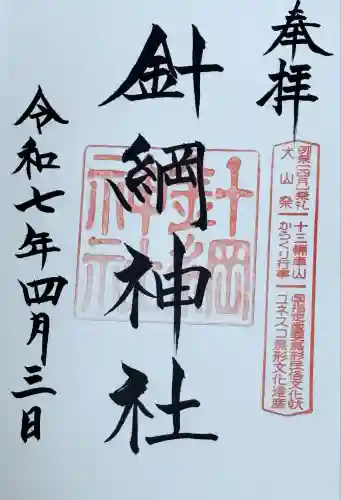 奉拝
針綱神社
令和七年四月三日
針綱
神社
例祭(四月)祭礼
犬山祭
十三輛車山
からくり行事
国指定重要無形民俗文化財
ユネスコ無形文化遺産